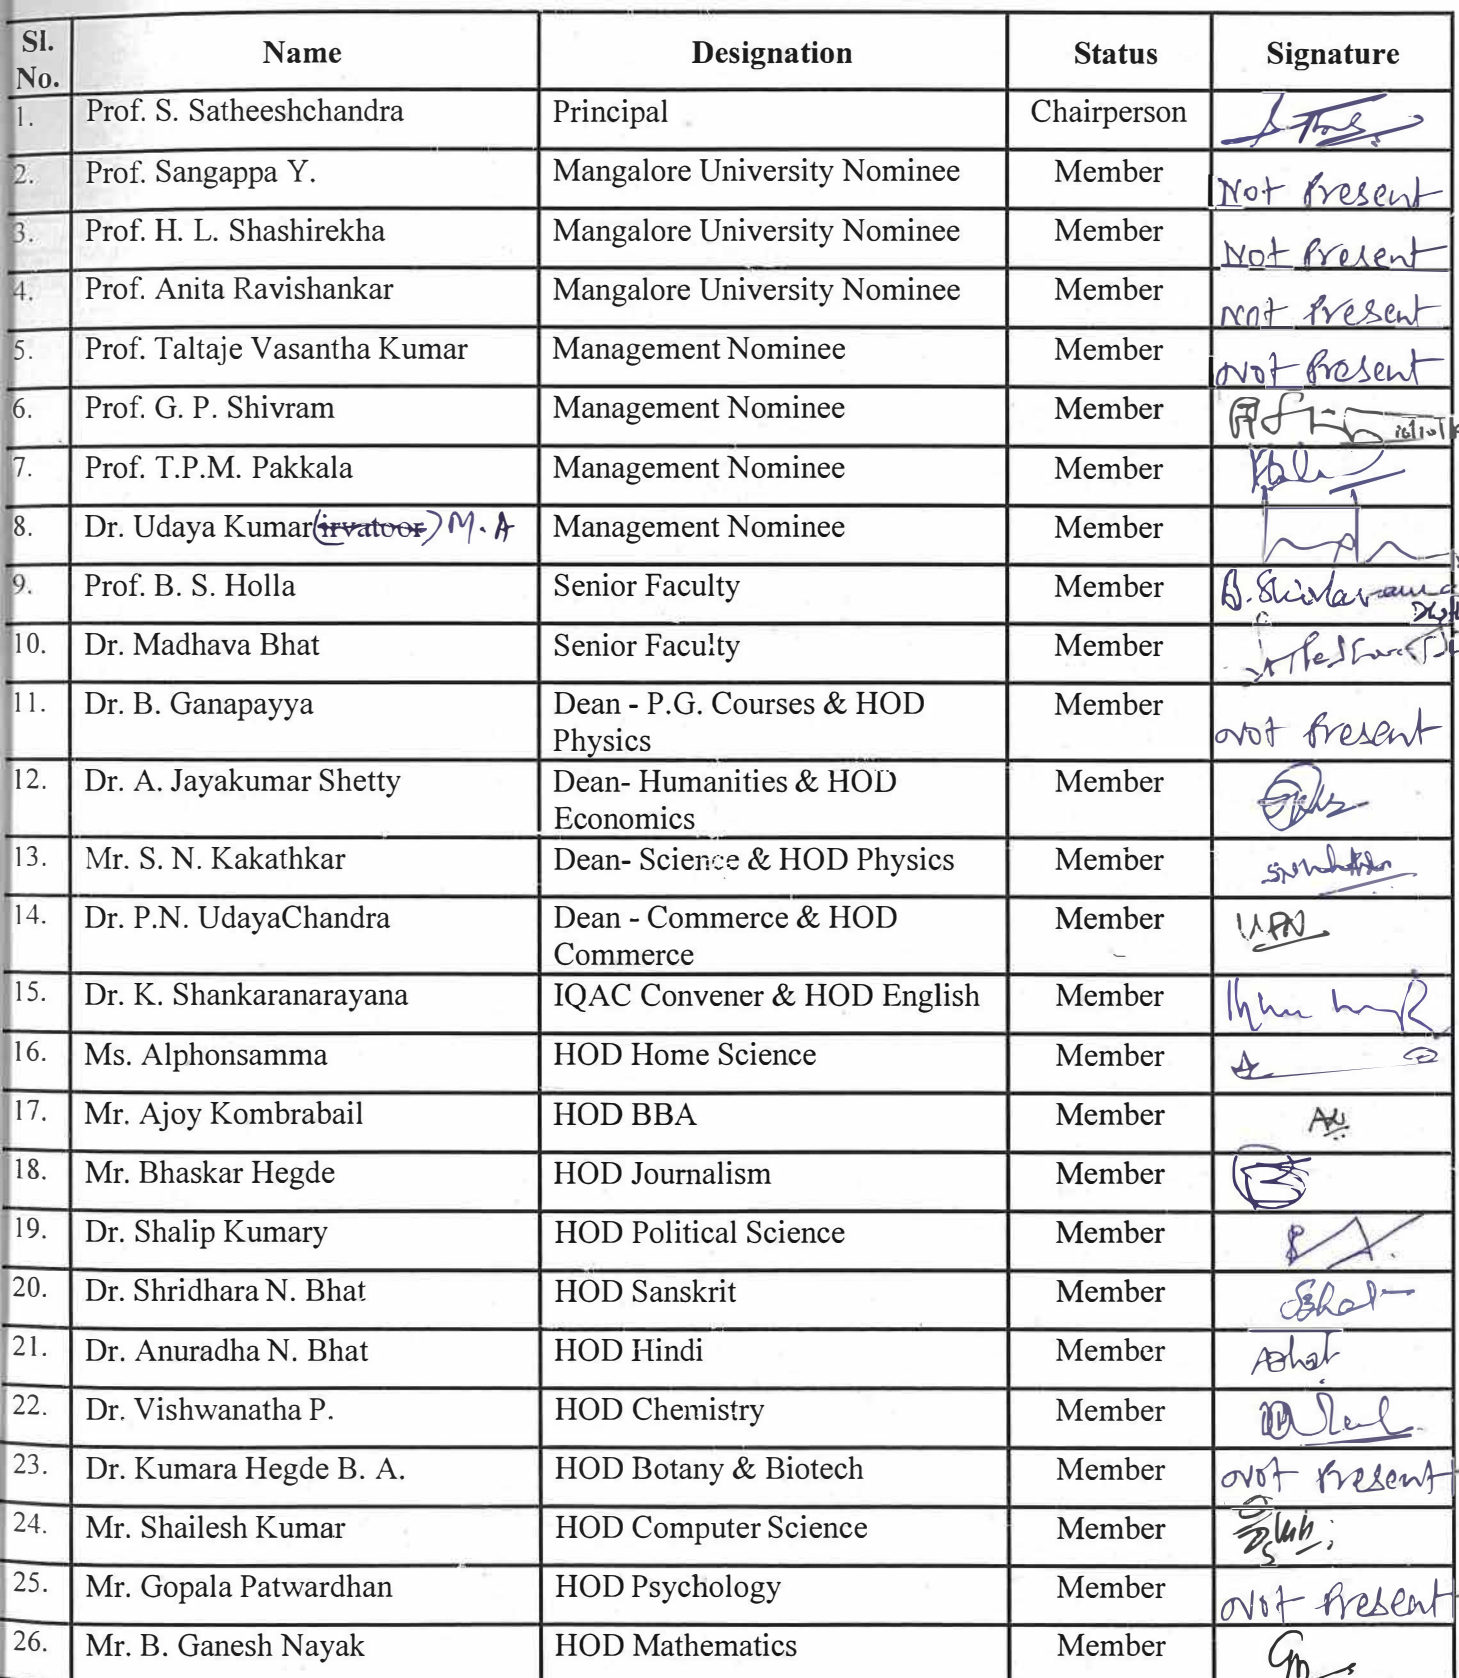 Sl. No. Name Designation Status Signature
1. Prof. S. Satheeshchandra Principal Chairperson
2. Prof. Sangappa Y. Mangalore University Nominee Member Not Present
3. Prof. H. L. Shashirekha Mangalore University Nominee Member Not Present
4. Prof. Anita Ravishankar Mangalore University Nominee Member Not Present
5. Prof. Taltaje Vasantha Kumar Management Nominee Member Not Present
6. Prof. G. P. Shivram Management Nominee Member
7. Prof. T.P.M. Pakkala Management Nominee Member
8. Dr. Udaya Kumar (irvatoor) M.A Management Nominee Member
9. Prof. B. S. Holla Senior Faculty Member
10. Dr. Madhava Bhat Senior Faculty Member
11. Dr. B. Ganapayya Dean - P.G. Courses & HOD
Physics Member Not Present
12. Dr. A. Jayakumar Shetty Dean- Humanities & HOD
Economics Member
13. Mr. S. N. Kakathkar Dean- Science & HOD Physics Member
14. Dr. P.N. UdayaChandra Dean - Commerce & HOD
Commerce Member UPN
15. Dr. K. Shankaranarayana IQAC Convener & HOD English Member
16. Ms. Alphonsamma HOD Home Science Member
17. Mr. Ajoy Kombrabail HOD BBA Member
18. Mr. Bhaskar Hegde HOD Journalism Member
19. Dr. Shalip Kumary HOD Political Science Member
20. Dr. Shridhara N. Bhat HOD Sanskrit Member
21. Dr. Anuradha N. Bhat HOD Hindi Member
22. Dr. Vishwanatha P. HOD Chemistry Member
23. Dr. Kumara Hegde B. A. HOD Botany & Biotech Member Not Present
24. Mr. Shailesh Kumar HOD Computer Science Member
25. Mr. Gopala Patwardhan HOD Psychology Member Not Present
26. Mr. B. Ganesh Nayak HOD Mathematics Member